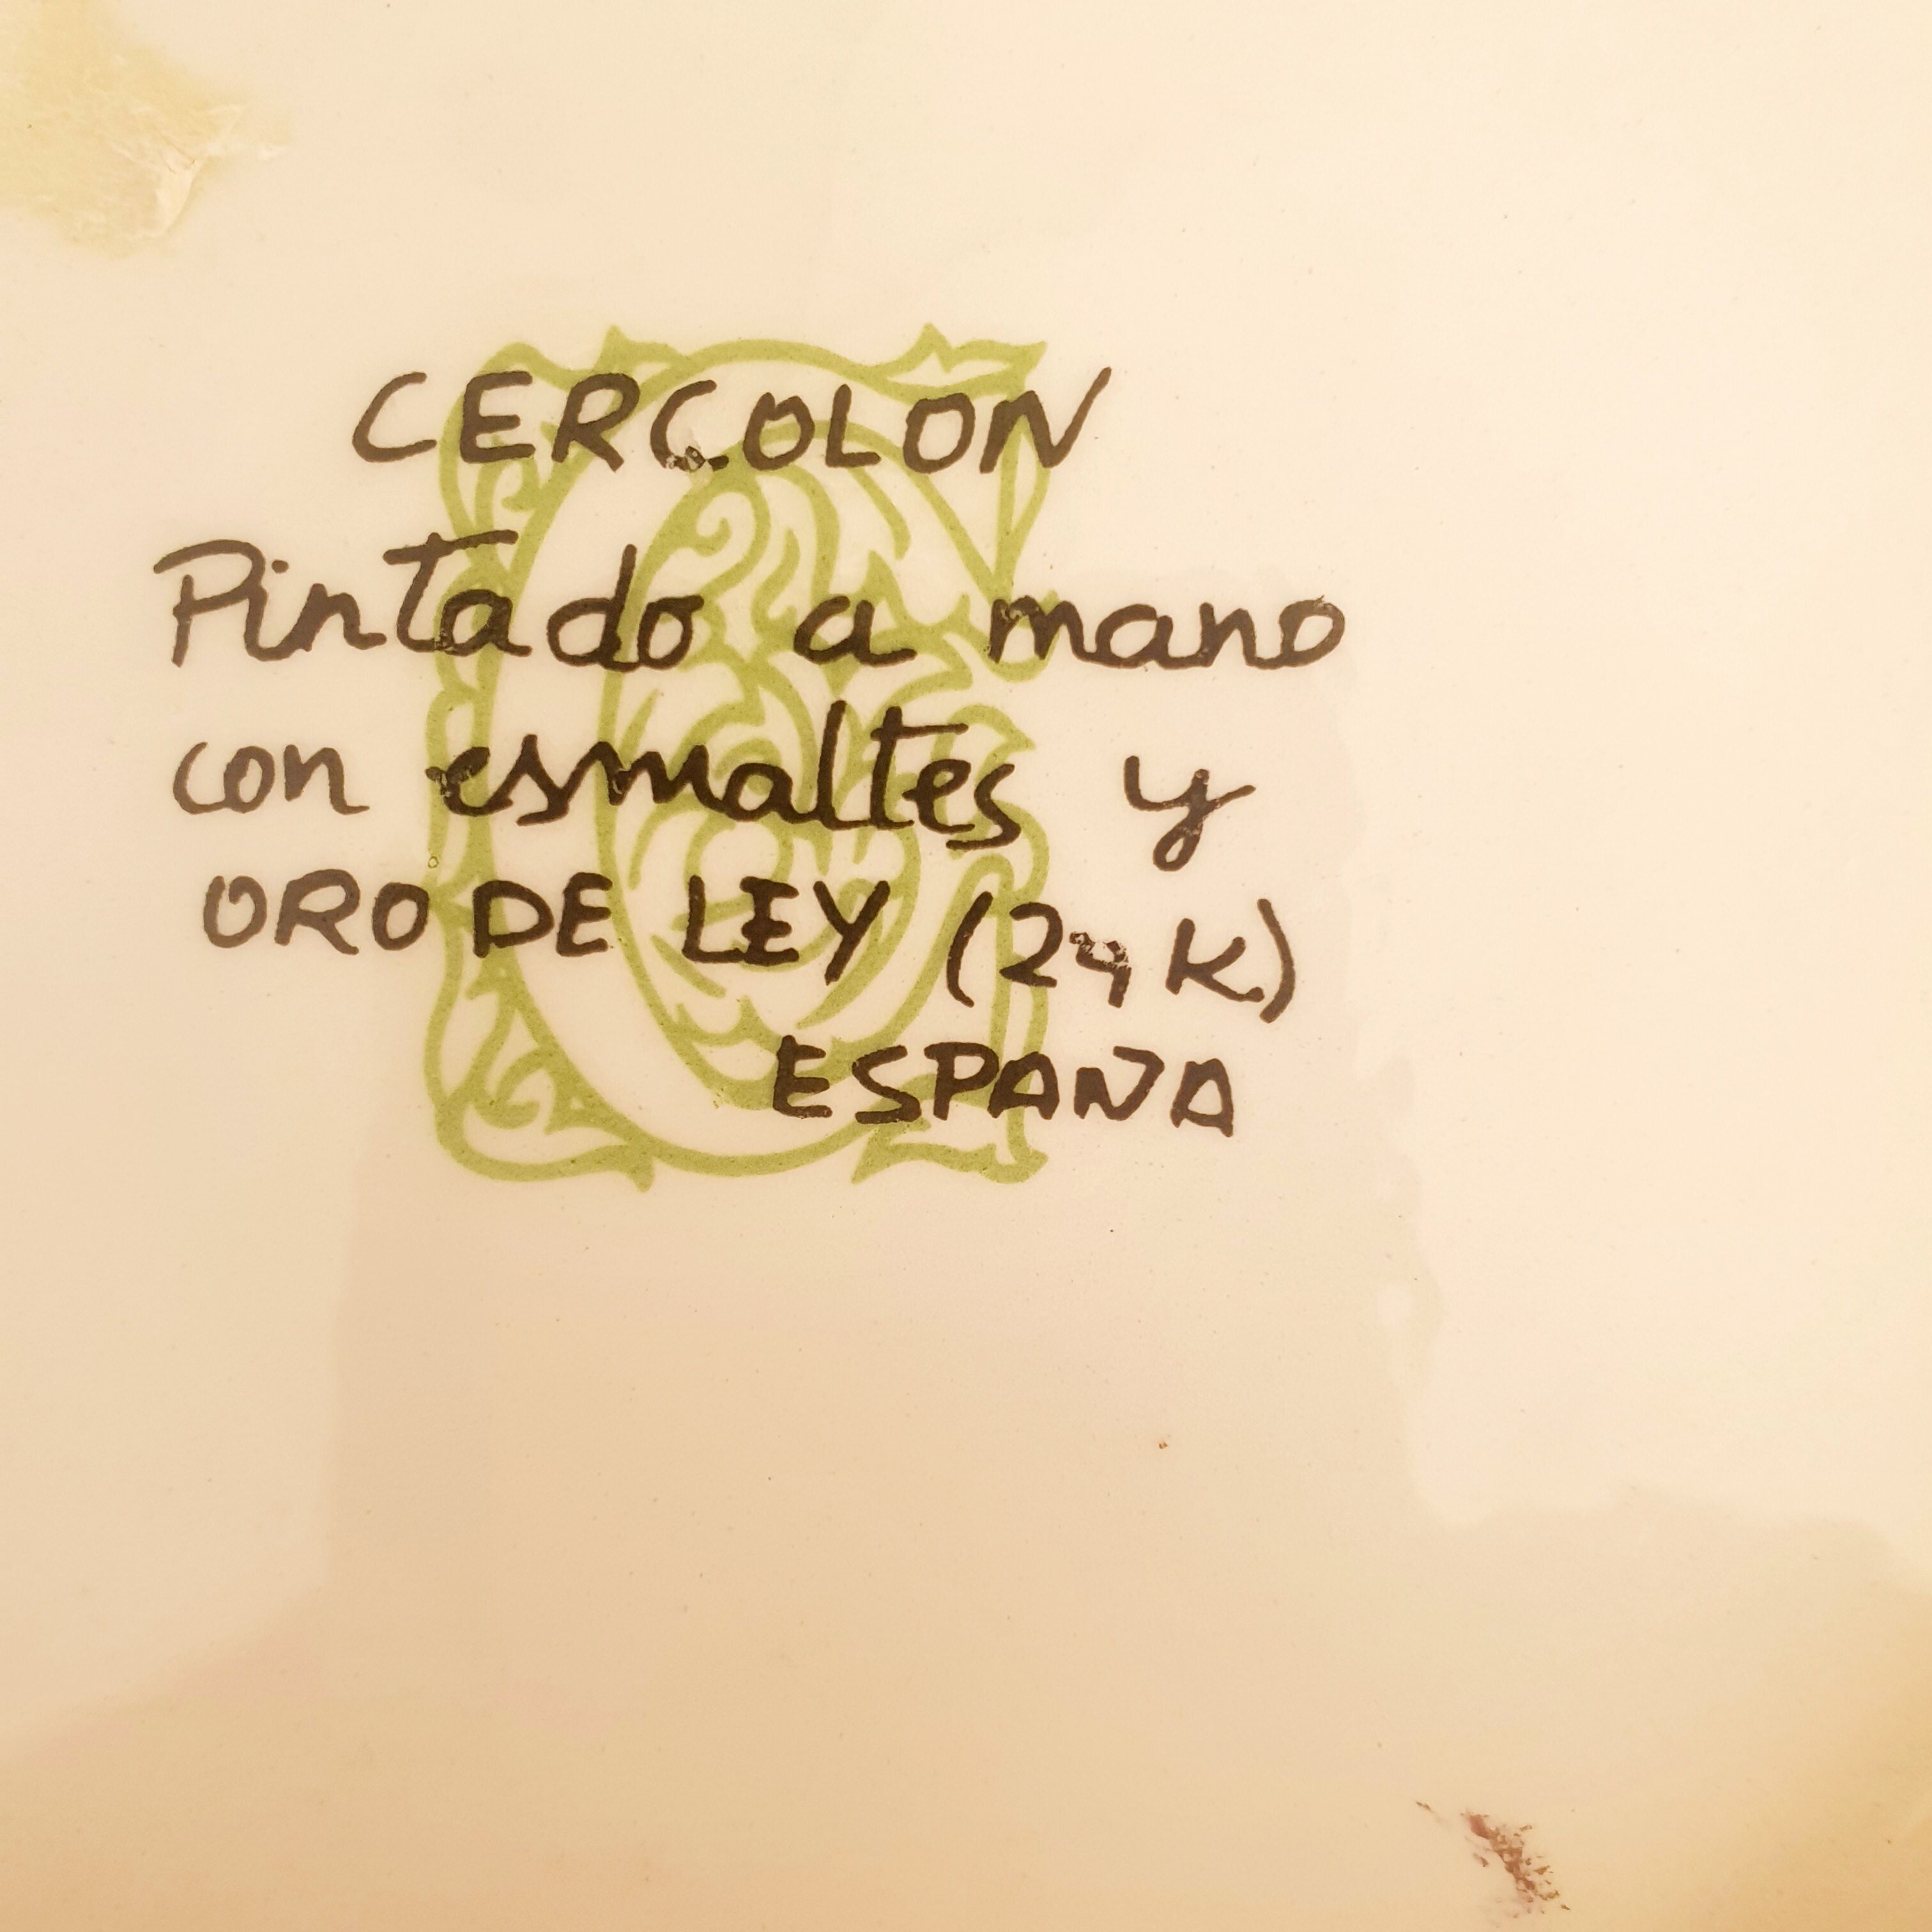 CERCOLON
Pintado a mano
con esmaltes y
ORO DE LEY (24 K)
ESPANA